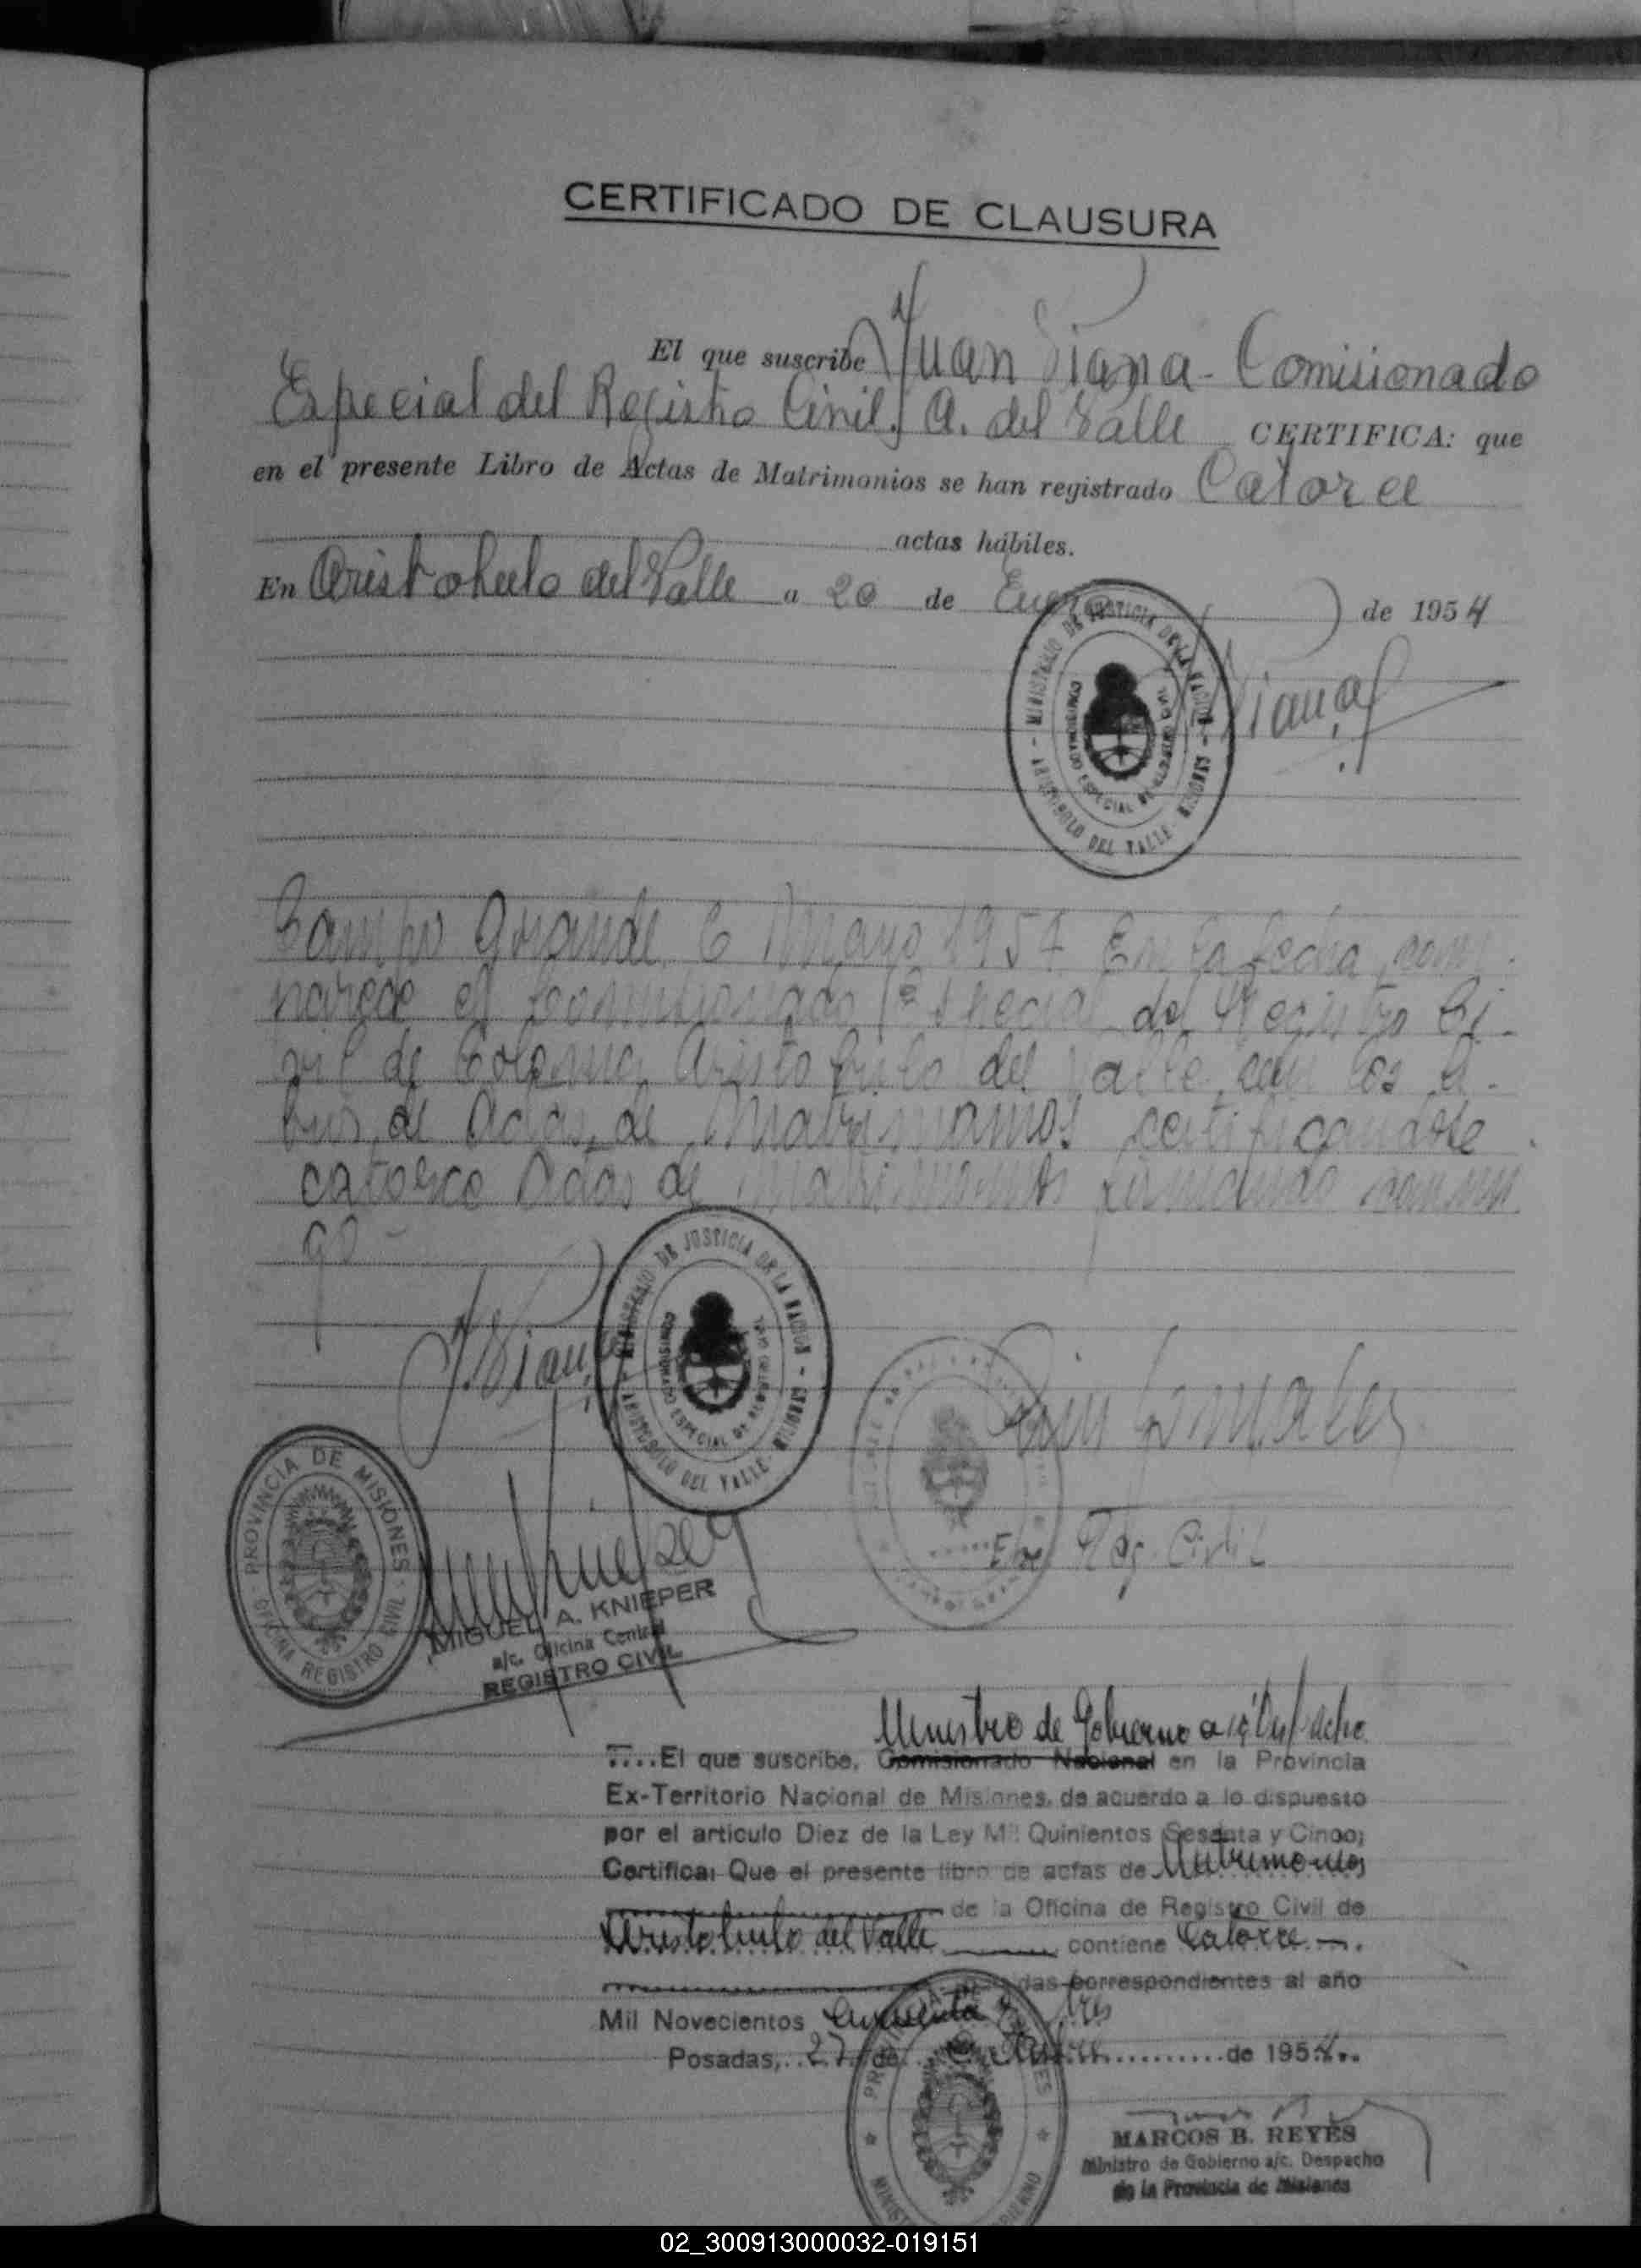 CERTIFICADO DE CLAUSURA
El que suscribe Juan Viana - Comisionado
Especial del Registro Civil. A. del Valle CERTIFICA: que
en el presente Libro de Actas de Matrimonios se han registrado Catorce
actas hábiles.
En Aristobulo del Valle a 20 de Enero de 1954
MINISTERIO DE JUSTICIA DE LA NACION - MISIONES - ARISTOBOLO DEL VALLE -
COMISIONADO ESPECIAL DE REGISTRO CIVIL
Viana
Campo Grande 6 Mayo 1954 En la fecha com
parece el Comisionado Especial del Registro Ci-
vil de Colonia Aristobulo del Valle con los li-
bros de Actas de Matrimonios certificandose
catorce Actas de Matrimonios firmando conmi
go -
J. Viana
MINISTERIO DE JUSTICIA DE LA NACION - MISIONES - ARISTOBOLO DEL VALLE -
COMISIONADO ESPECIAL DE REGISTRO CIVIL
Enc Reg. Civil
PROVINCIA DE MISIONES - OFICINA REGISTRO CIVIL -
MIGUEL A. KNIEPER
a/c. Oficina Central
REGISTRO CIVIL
Ministro de Gobierno a/c Despacho
....El que suscribe, Comisionado Nacional en la Provincia
Ex-Territorio Nacional de Misiones, de acuerdo a lo dispuesto
por el artículo Diez de la Ley Mil Quinientos Sesenta y Cinco;
Certifica: Que el presente libro de actas de Matrimonios
de la Oficina de Registro Civil de
Aristobulo del Valle contiene Catorce
correspondientes al año
Mil Novecientos Cincuenta y tres
Posadas, 27 de de 1954
MARCOS B. REYES
Ministro de Gobierno a/c. Despacho
de la Provincia de Misiones
02_300913000032-019151